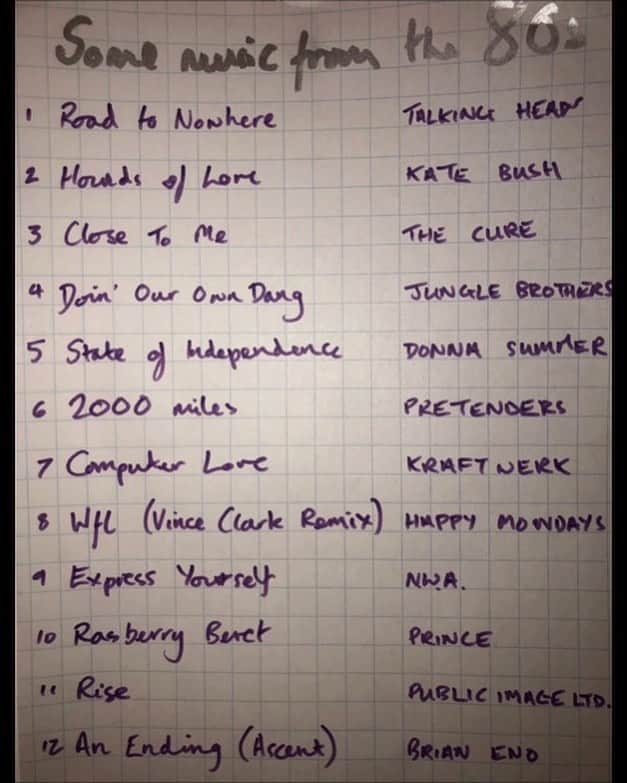 Some music from the 80s
1 Road to Nowhere TALKING HEADS
2 Hounds of Love KATE BUSH
3 Close To Me THE CURE
4 Doin' Our Own Dang JUNGLE BROTHERS
5 State of Independence DONNA SUMMER
6 2000 miles PRETENDERS
7 Computer Love KRAFTWERK
8 Wfl (Vince Clark Remix) HAPPY MONDAYS
9 Express Yourself N.W.A.
10 Rasberry Beret PRINCE
11 Rise PUBLIC IMAGE LTD.
12 An Ending (Ascent) BRIAN ENO